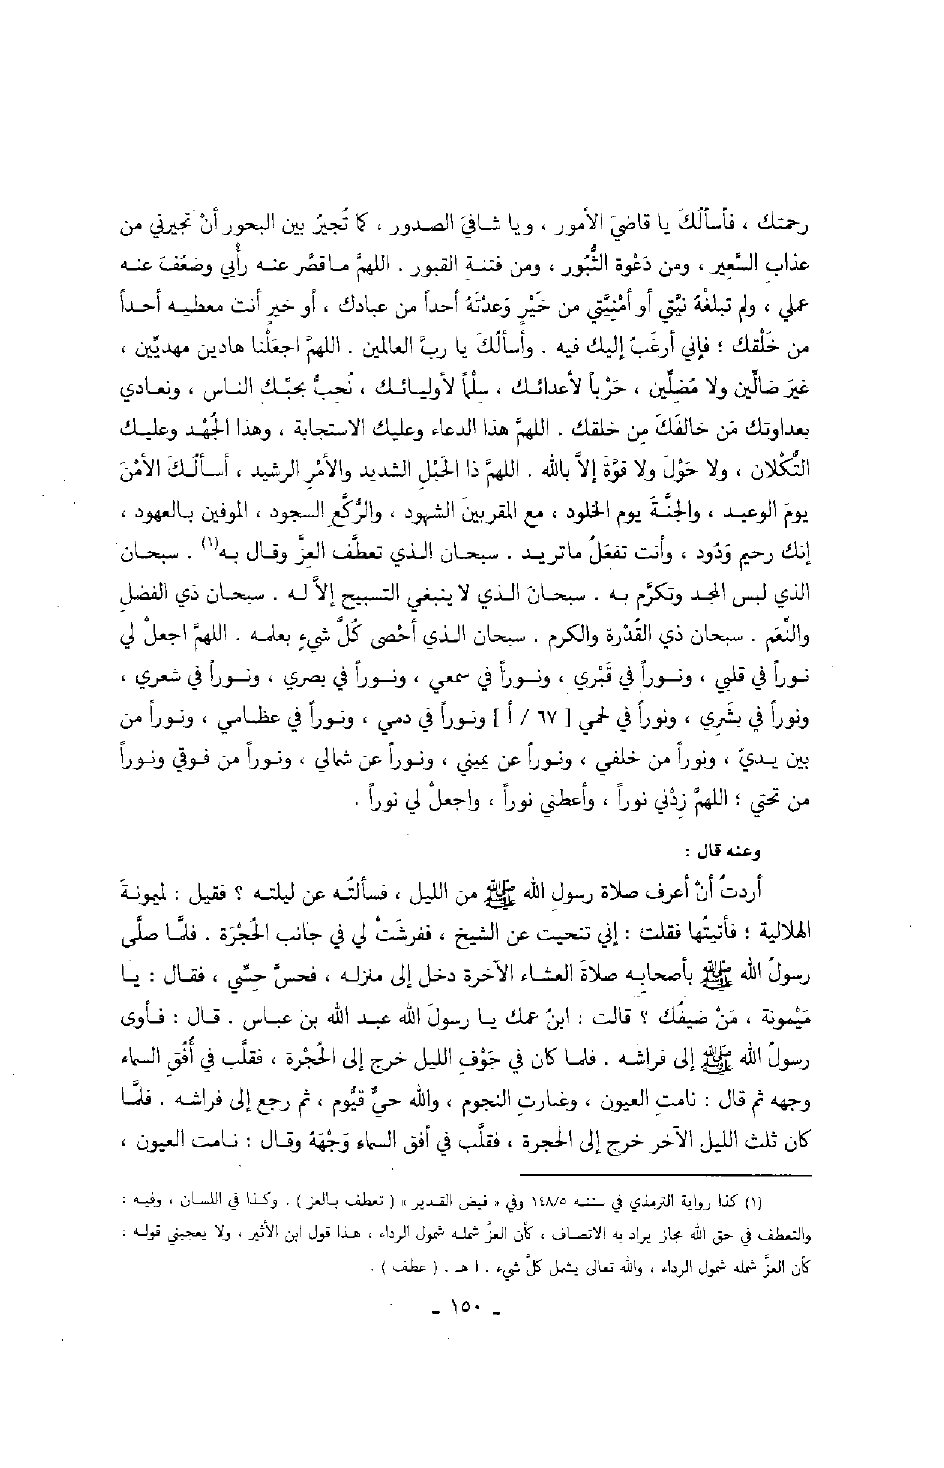 رحمتك ، فأسألُكَ يا قاضيَ الأمور ، ويا شافيَ الصدور ، كما تُجيرُ بين البحور أنْ تجيرني من
عذاب السَّعير ، ومن دَعْوة الثُّبُور ، ومن فتنة القبور . اللهمَّ ماقصُر عنه رأْيي وضعُفَ عنه
عملي ، ولم تبلغْهُ نيَّتي أو أُمْنِيَّتي من خَيْرٍ وَعدْتَهُ أحداً من عبادك ، أو خيرٍ أنت معطيه أحداً
من خَلْقك ؛ فإني أرغَبُ إليك فيه . وأسألُكَ يا ربَّ العالمين . اللهمَّ اجعَلْنا هادين مهديّين ،
غيرَ ضالّين ولا مُضلّين ، حَرْباً لأعدائك ، سلْماً لأوليائك ، نُحِبُّ بحبّك الناس ، ونعادي
بعداوتك مَن خالفَكَ مِن خلقك . اللهمَّ هذا الدعاء وعليك الاستجابة ، وهذا الجُهْد وعليك
التُّكلان ، ولا حَوْلَ ولا قوّةَ إلاَّ بالله . اللهمَّ ذا الحَبْل الشديد والأمْر الرشيد ، أسألكَ الأمْنَ
يومَ الوعيد ، والجنَّةَ يوم الخلود ، مع المقربينَ الشهود ، والرُّكَّع السجود ، الموفين بالعهود ،
إنك رحيم وَدُود ، وأنت تفعلُ ماتريد . سبحان الذي تعطَّف العزَّ وقال به(١) . سبحان
الذي لبس المجد وتكرَّم به . سبحانَ الذي لا ينبغي التسبيح إلاَّ له . سبحان ذي الفضلِ
والنِّعَم . سبحان ذي القُدْرة والكرم . سبحان الذي أحْصى كُلَّ شيءٍ بعلمه . اللهمَّ اجعلْ لي
نوراً في قلبي ، ونوراً في قَبْري ، ونوراً في سمعي ، ونوراً في بصري ، ونوراً في شعري ،
ونوراً في بشَري ، ونوراً في لحمي [ ٦٧ / أ ] ونوراً في دمي ، ونوراً في عظامي ، ونوراً من
بين يديّ ، ونوراً من خلفي ، ونوراً عن يميني ، ونوراً عن شمالي ، ونوراً من فوقي ونوراً
من تحتي ؛ اللهمَّ زِدْني نوراً ، وأعطني نوراً ، واجعلْ لي نوراً .
وعنه قال :
أردتُ أنْ أعرف صلاة رسول الله ﷺ من الليل ، فسألتُه عن ليلته ؟ فقيل : لميمونةَ
الهلالية ؛ فأتيتُها فقلت : إني تنحيت عن الشيخ ، ففرشَتْ لي في جانب الحُجْرَة . فلمَّا صلَّى
رسولُ الله ﷺ بأصحابه صلاةَ العشاء الآخرة دخل إلى منزله ، فحسَّ حِسِّي ، فقال : يا
مَيْمونة ، مَنْ ضيفُك ؟ قالت : ابنُ عمك يا رسولَ الله عبد الله بن عباس . قال : فأوى
رسولُ الله ﷺ إلى فراشه . فلما كان في جَوْفِ الليل خرج إلى الحُجْرة ، فقلَّب في أُفُقِ السماء
وجهه ثم قال : نامتِ العيون ، وغارتِ النجوم ، والله حيٌّ قيُّوم ، ثم رجع إلى فراشه . فلمَّا
كان ثلث الليل الآخر خرج إلى الحجرة ، فقلَّب في أفق السماء وَجْهَهُ وقال : نامت العيون ،
(١) كذا رواية الترمذي في سننه ١٤٨/٥ وفي « فيض القدير » ( تعطف بالعز ) . وكذا في اللسان ، وفيه :
والتعطف في حق الله مجاز يراد به الاتصاف ، كأن العزَّ شمله شمول الرداء ، هذا قول ابن الأثير ، ولا يعجبني قوله :
كأن العزَّ شمله شمول الرداء ، والله تعالى يشمل كلَّ شيء . ا هـ . ( عطف ) .
ـ ١٥٠ ـ